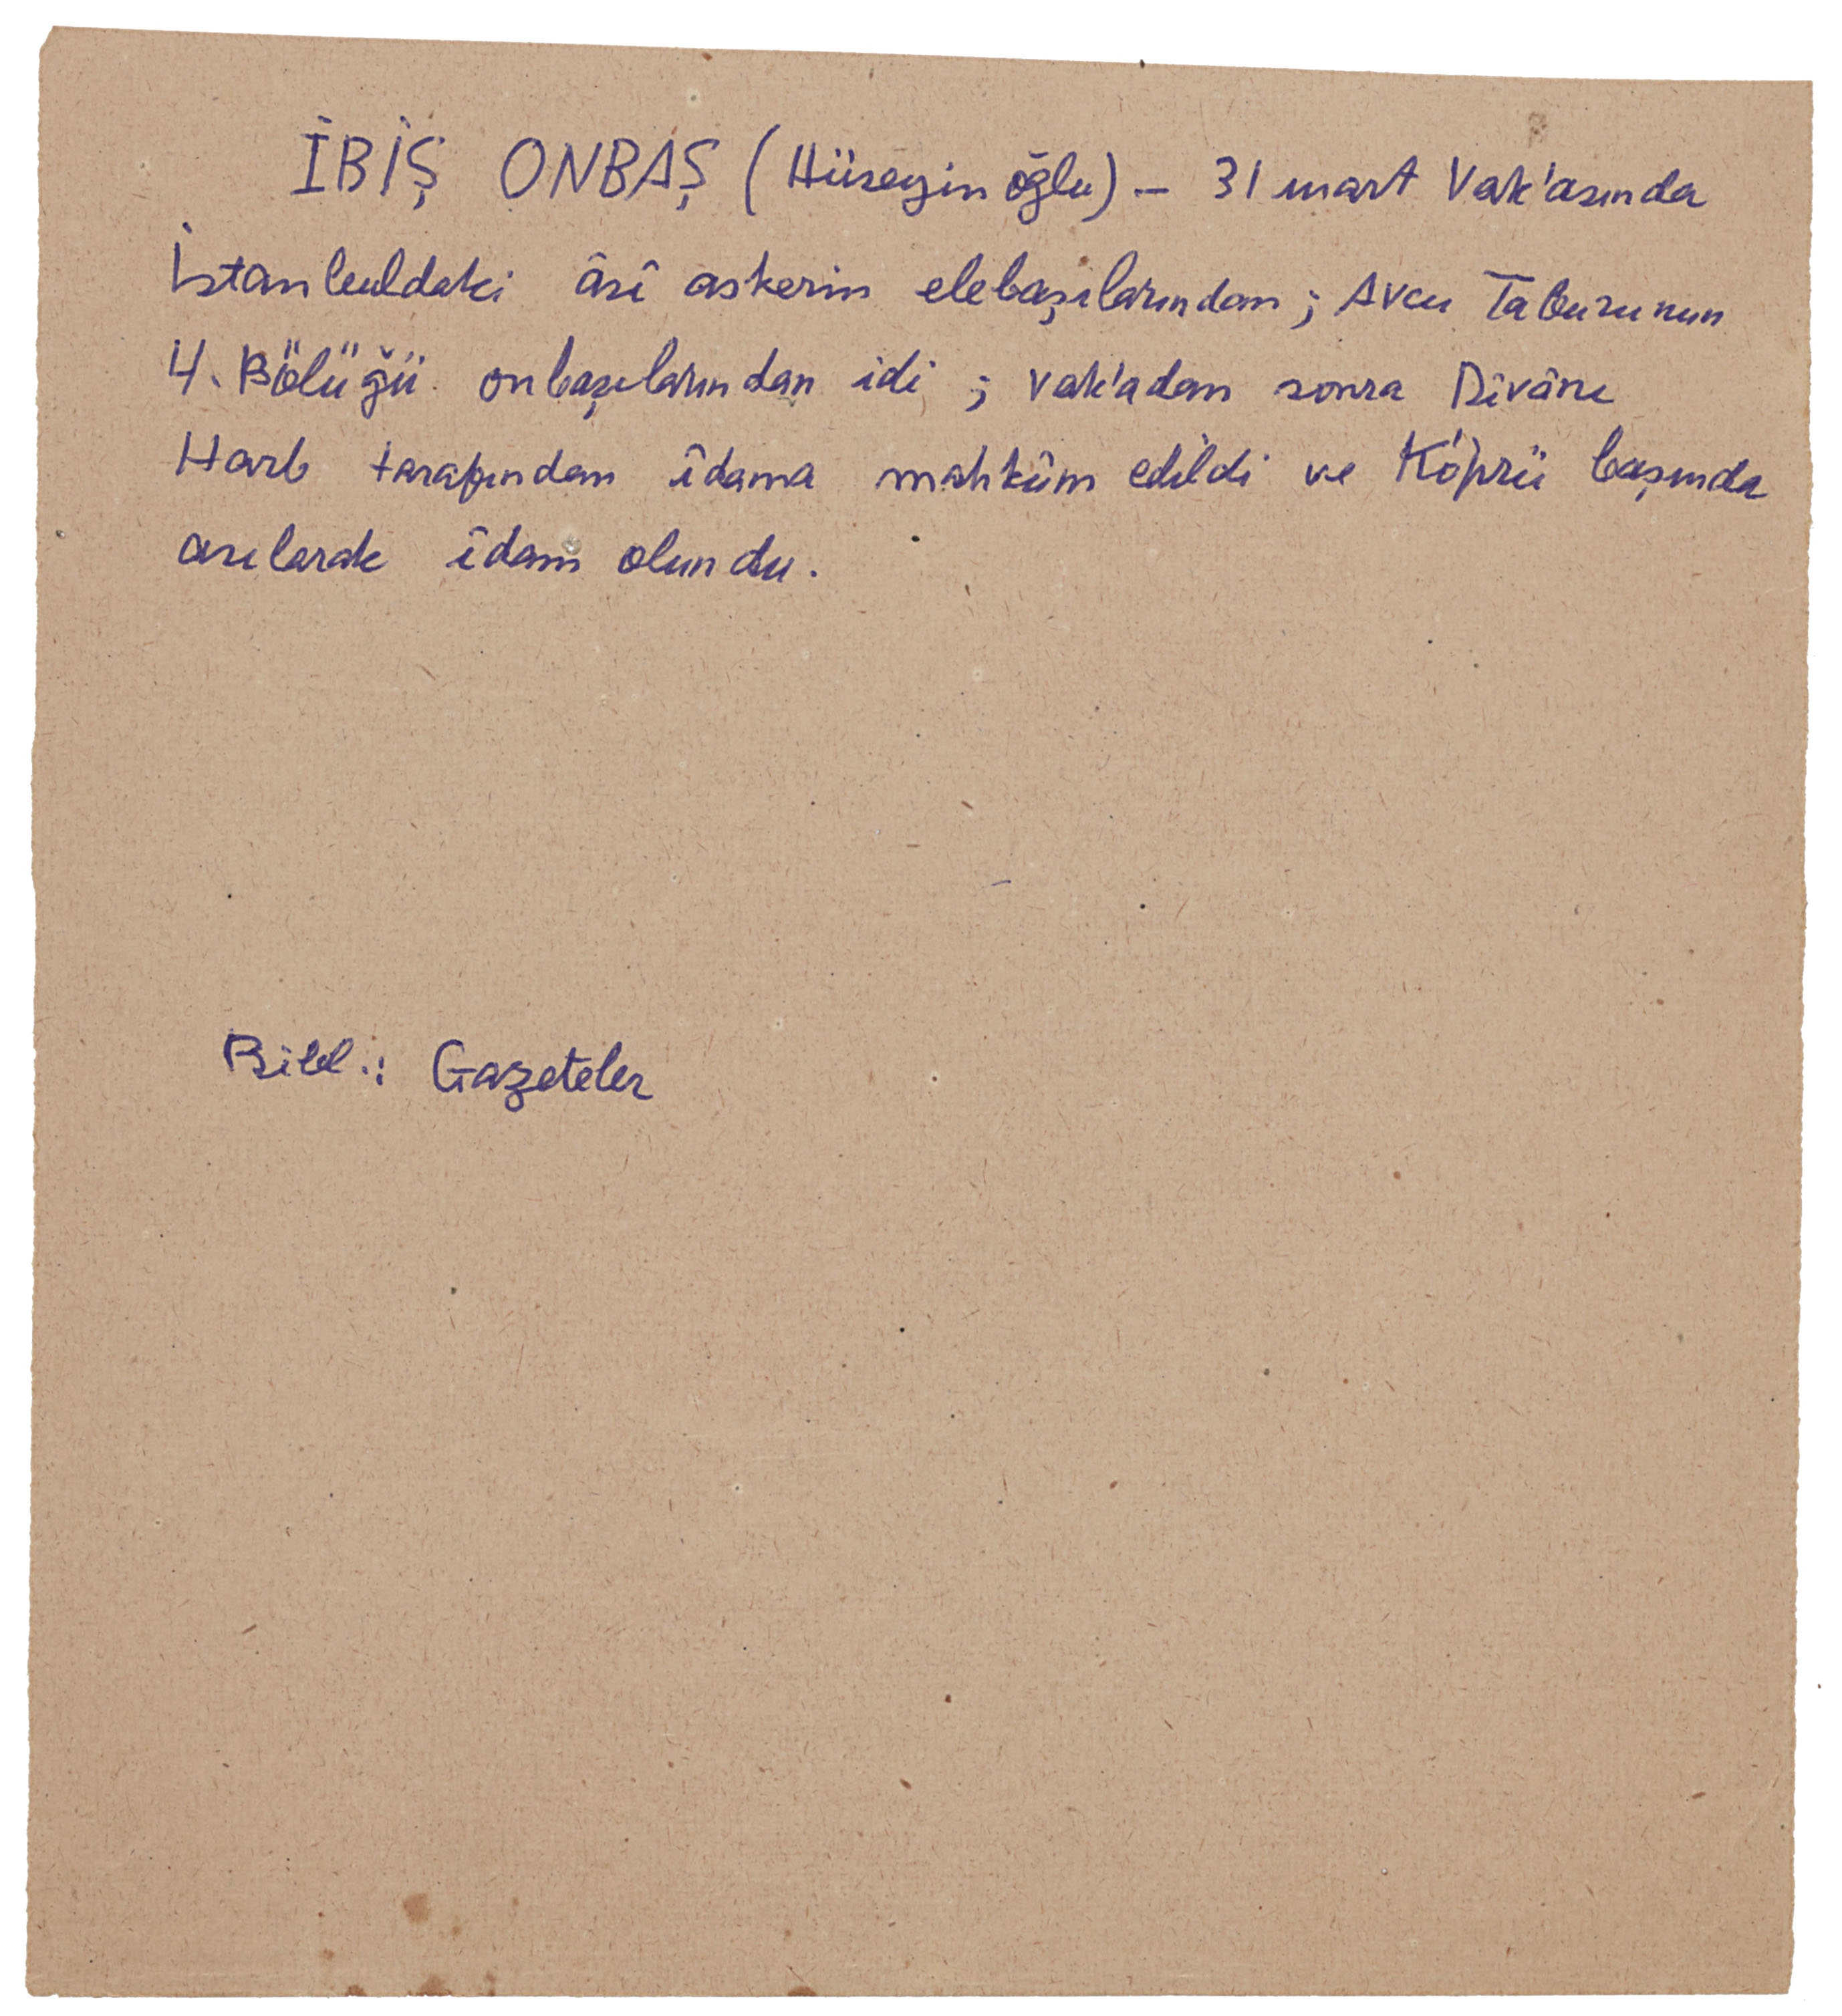 İBİŞ ONBAŞ (Hüseyin oğlu) — 31 mart Vak'asında
İstanbuldaki âsî askerin elebaşılarından; Avcı Taburunun
4. Bölüğü onbaşılarından idi; vak'adan sonra Dîvânı
Harb tarafından îdama mahkûm edildi ve Köprü başında
asılarak îdam olundu.
Bibl.: Gazeteler